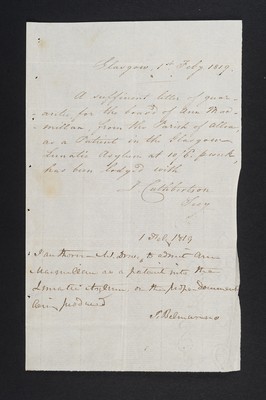 Glasgow, 1st Feby 1819.
A sufficient letter of guar-
-antee for the board of Ann Mac-
-millan from the Parish of
as a Patient in the Glasgow
Lunatic Asylum at 10/6 p. week
has been lodged with
J. Cuthbertson
Secy
1 Feb 1819
I authorise Mr Drury to admit Ann
Macmillan as a patient into the
Lunatic Asylum on the proper Document
being produced